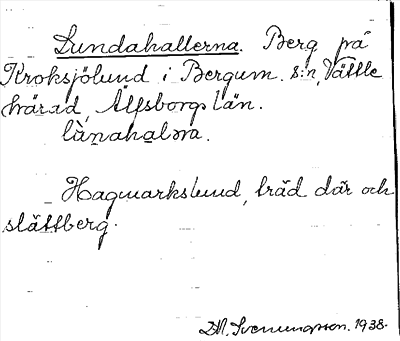 Lundahallerna. Berg på
Kroksjölund i Bergum s:n, Vättle
härad, Älfsborgs län.
lùnahalɔra.
Hagmarkslund, träd där och
slättberg.
D.M. Svenungsson. 1938.